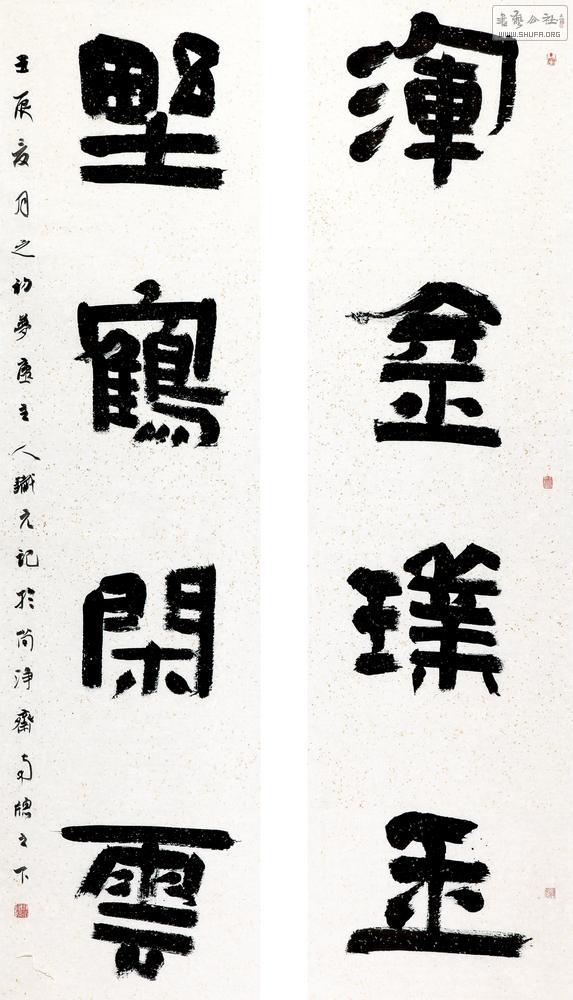 書藝公社
WWW.SHUFA.ORG
渾金璞玉
野鶴閑雲
壬辰夏月之初夢主人鐵元記於尚淨齋南牕之下